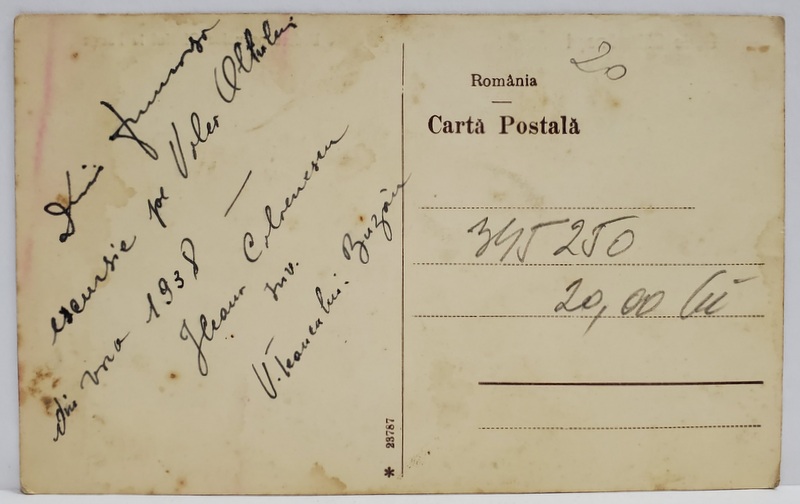 Din frumoasa
escursie pe Valea Oltului
din vara 1938 —
Ileana
înv.
Buzău
* 23787
România
Cartă Postală
20
345250
20,00 lei